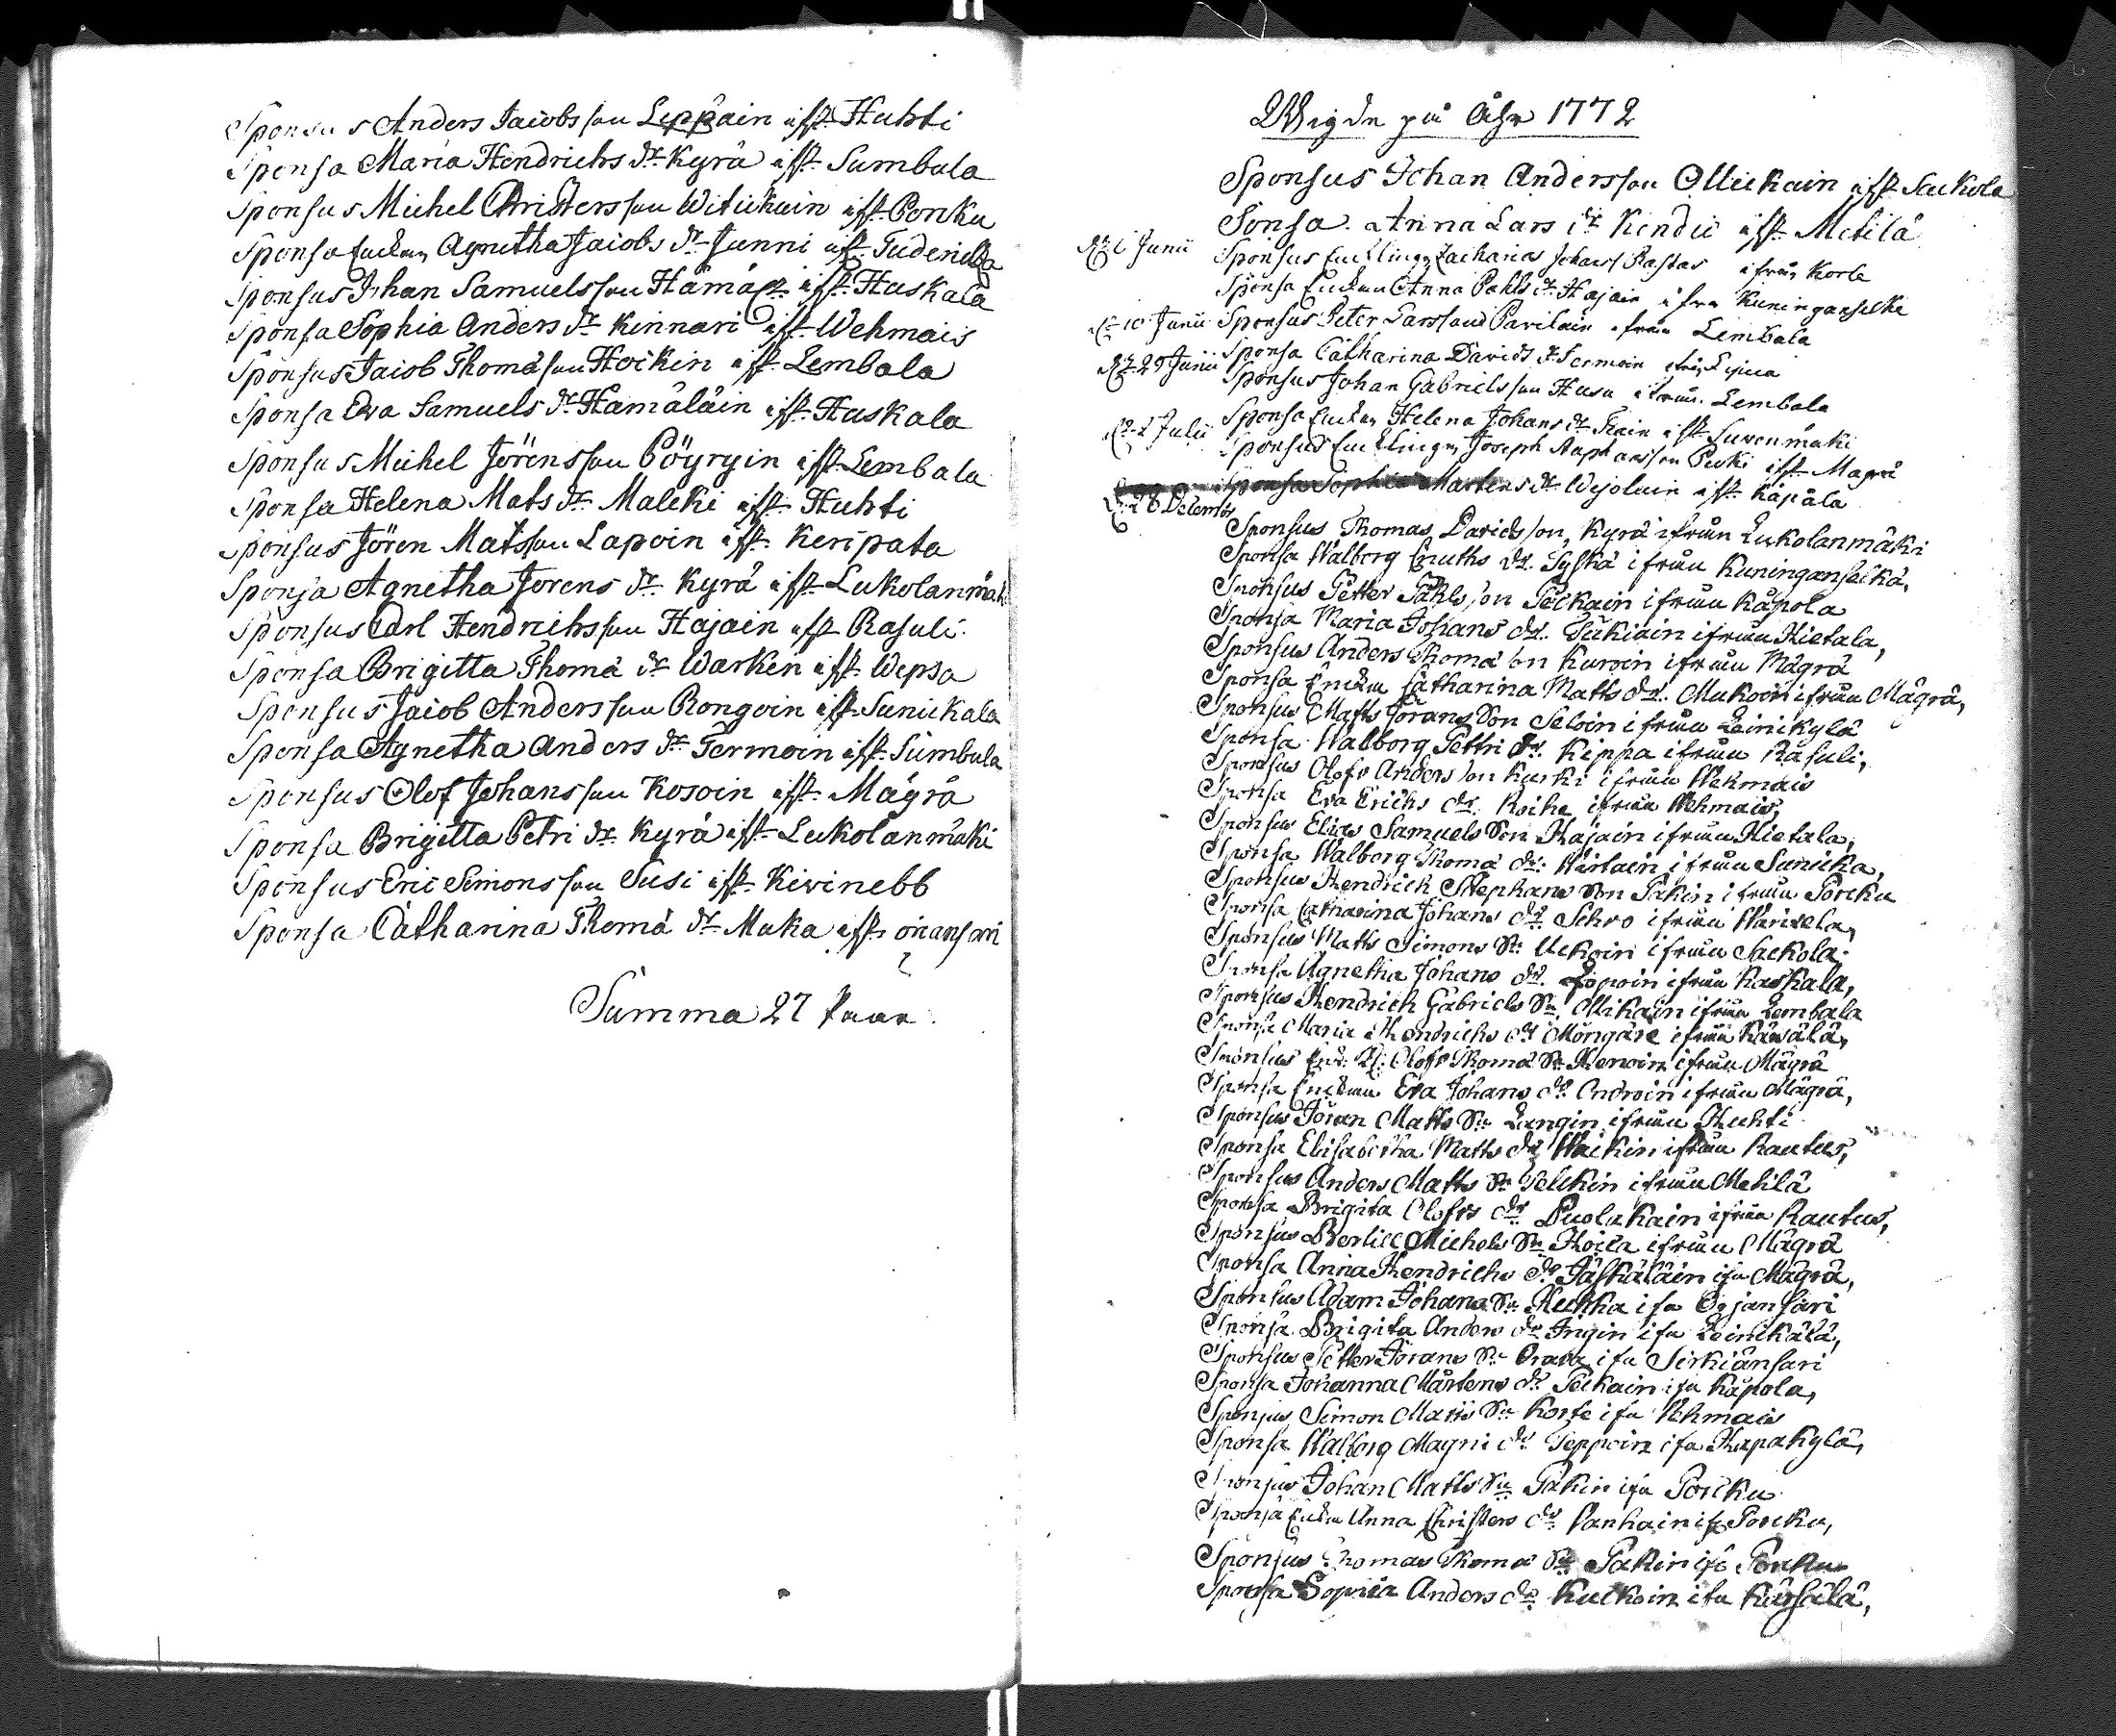 Sponsus Anders Jacobs son Leppäin ifr. Huhti
Sponsa Maria Hendrichs dr. Kyrä ifr. Sumbula
Sponsus Michel Christers son Witickain ifr. Porcku
Sponsa Enckan Agnetha Jacobs dr. Junni ifr.
Sponsus Johan Samuels son Hämäläin ifr. Haskala
Sponsa Sophia Anders dr. Kinnari ifr. Wehmais
Sponsus Jacob Thomä son Hockin ifr. Lembala
Sponsa Eva Samuels dr. Hämäläin ifr. Haskala
Sponsus Michel Jörens son Pöyryin ifr. Lembala
Sponsa Helena Mats dr. Malcki ifr. Huhti
Sponsus Jören Mats son Lapoin ifr. Keripata
Sponsa Agnetha Jörens dr. Kyrä ifr. Lukolanmäki
Sponsus Carl Hendrichs son Hajain ifr. Rasuli
Sponsa Brigitta Thomä dr. Warken ifr. Wepsa
Sponsus Jacob Anders son Rongoin ifr. Sunickala
Sponsa Agnetha Anders dr. Termoin ifr. Sumbula
Sponsus Olof Johans son Kosoin ifr. Mägrä
Sponsa Brigitta Petri dr. Kyrä ifr. Lukolanmäki
Sponsus Eric Simons son Susi ifr. Kivinebb
Sponsa Catharina Thomä dr. Muka ifr. oriansari
Summa 27 Paar.
Wigde på Åhr 1772
Sponsus Johan Anders son Ollickain ifr. Sackola
Sonsa. Anna Lars dr. Kendic ifr. Metilä
Junii Sponsus Enckling Zacharias Johans Rastas ifrån Korle
Sponsa Enckan Anna Pahls dr. Hajain ifrån Kuninganselke
10 Junii Sponsus Peter Lars son Parilain ifrån Lembala
Sponsa Catharina Davids dr. Termoin
29 Junii Sponsus Johan Gabriels son Husu ifrån Lembala
Sponsa Enckan Helena Johans dr. Train ifr. Suvenmäki
2 Julii Sponsus Enckling Joseph son Pucki ifr. Mägrä
Sponsa Sophia Martens dr. Wejolain ifr. Käpälä
28 Decembr
Sponsus Thomas Davids son, Kyrä ifrån Lukolanmäki
Sponsa Walborg Cnuths dr. Syskä ifrån Kuninganselkä,
Sponsus Petter Påhls son Peckain ifrån Kåpola
Sponsa Maria Johans dr. Tickiain ifrån Hietala,
Sponsus Anders Thomä son Kuroin ifrån Mägrä
Sponsa Enckan Catharina Matts dr. Mukoin ifrån Mägrä,
Sponsus Matts Jörans Son Seloin ifrån Leinikylä
Sponsa Walborg Pettri dr. Keppa ifrån Rasuli,
Sponsus Olofs Anders son Kurki ifrån Wehmais
Sponsa Eva Erichs dr. Koike ifrån Wehmais,
Sponsus Elias Samuels Son Hajain ifrån Hietala,
Sponsa Walborg Thomä dr. Wirlain ifrån Sunicka,
Sponsus Hendrich Stephans Son Pakin ifrån Porcku
Sponsa Catharina Johans dr. Sehvo ifrån Warixela,
Sponsus Matts Simons Sn. Uckoin ifrån Sackola
Sponsa Agnetha Johans dr. Lopoin ifrån Kaskala,
Sponsus Hendrich Gabriels Sn. Mikain ifrån Lembala
Sponsa Maria Hendrichs dr. Möngäre ifrån Käväla,
Sponsus Enk: Kl: Olofs Thomä Sn. Henoin ifrån Mägrä
Sponsa Enckan Eva Johans dr. Androin ifrån Mägrä,
Sponsus Jöran Matts Sn. Langin ifrån Huhti
Sponsa Elisabetha Matts dr. Waickin ifrån Rautus,
Sponsus Anders Matts Sn. Telckin ifrån Metilä
Sponsa Brigita Olofs dr. Puolakain ifrån Rautus,
Sponsus Bertill Michels Sn. Hoica ifrån Mägrä
Sponsa Anna Hendrichs dr. Jäskäläin ifn Mägrä,
Sponsus Adam Johans Sn. Huhka ifn Orjansari
Sponsa Brigita Anders dr. Ingin ifn Leinikälä,
Sponsus Petter Jörans Sn. Orava ifn Sirkiänsari
Sponsa Johanna Mårtens dr. Peckain ifn Kåpola,
Sponsus Simon Matts Sn. Korte ifn Wehmais
Sponsa Walborg Magni dr. Teppoin ifn Hapakylä,
Sponsus Johan Matts Sn. Pakin ifn Porcku
Sponsa Enckan Anna Christers dr. Vanhain ifn Porcku,
Sponsus Thomas Thomä Sn. Pakin ifn Porcku
Sponsa Sophia Anders dr. Kuckoin ifn Kärsälä,